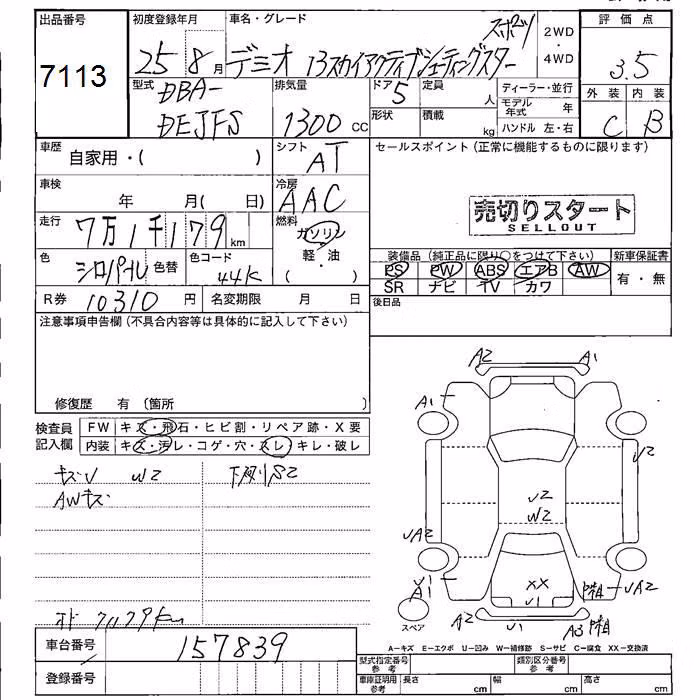 出品番号
7113
初度登録年月
25 8月
車名・グレード
スポーツ
デミオ 13スカイアクティブシューティングスター
2WD
・
4WD
評価点
3.5
外装 内装
C B
型式
DBA-
DEJFS
排気量
1300 cc
ドア 5
定員 人
形状
積載 kg
ディーラー・並行
モデル年式 年
ハンドル 左・右
車歴
自家用・( )
シフト
AT
セールスポイント (正常に機能するものに限ります)
車検
年 月( 日)
冷房
AAC
売切りスタート
SELLOUT
走行
7万1千179km
燃料
ガソリン
軽・油
( )
色
シロパール
色替
色コード
44K
装備品 (純正品に限り○をつけて下さい)
新車保証書
PS PW ABS エアB AW
SR ナビ TV カワ
有・無
後日品
R券 10310円
名変期限 月 日
注意事項申告欄 (不具合内容等は具体的に記入して下さい)
修復歴 有 (箇所 )
検査員
記入欄
FW キズ・飛石・ヒビ割・リペア跡・X要
内装 キズ・汚レ・コゲ・穴・スレ・キレ・破レ
キズU W2
下廻りS2
AWキズ
A2 A1
A1
U2
U2
W2
UA2
U1
A1
XX
U1
UA2
A2
A3
スペア
車台番号
157839
登録番号
A-キズ E-エクボ U-凹み W-補修跡 S-サビ C-腐食 XX-交換済
型式指定番号
参考
類別区分番号
参考
車庫証明用
参考
長さ cm
幅 cm
高さ cm